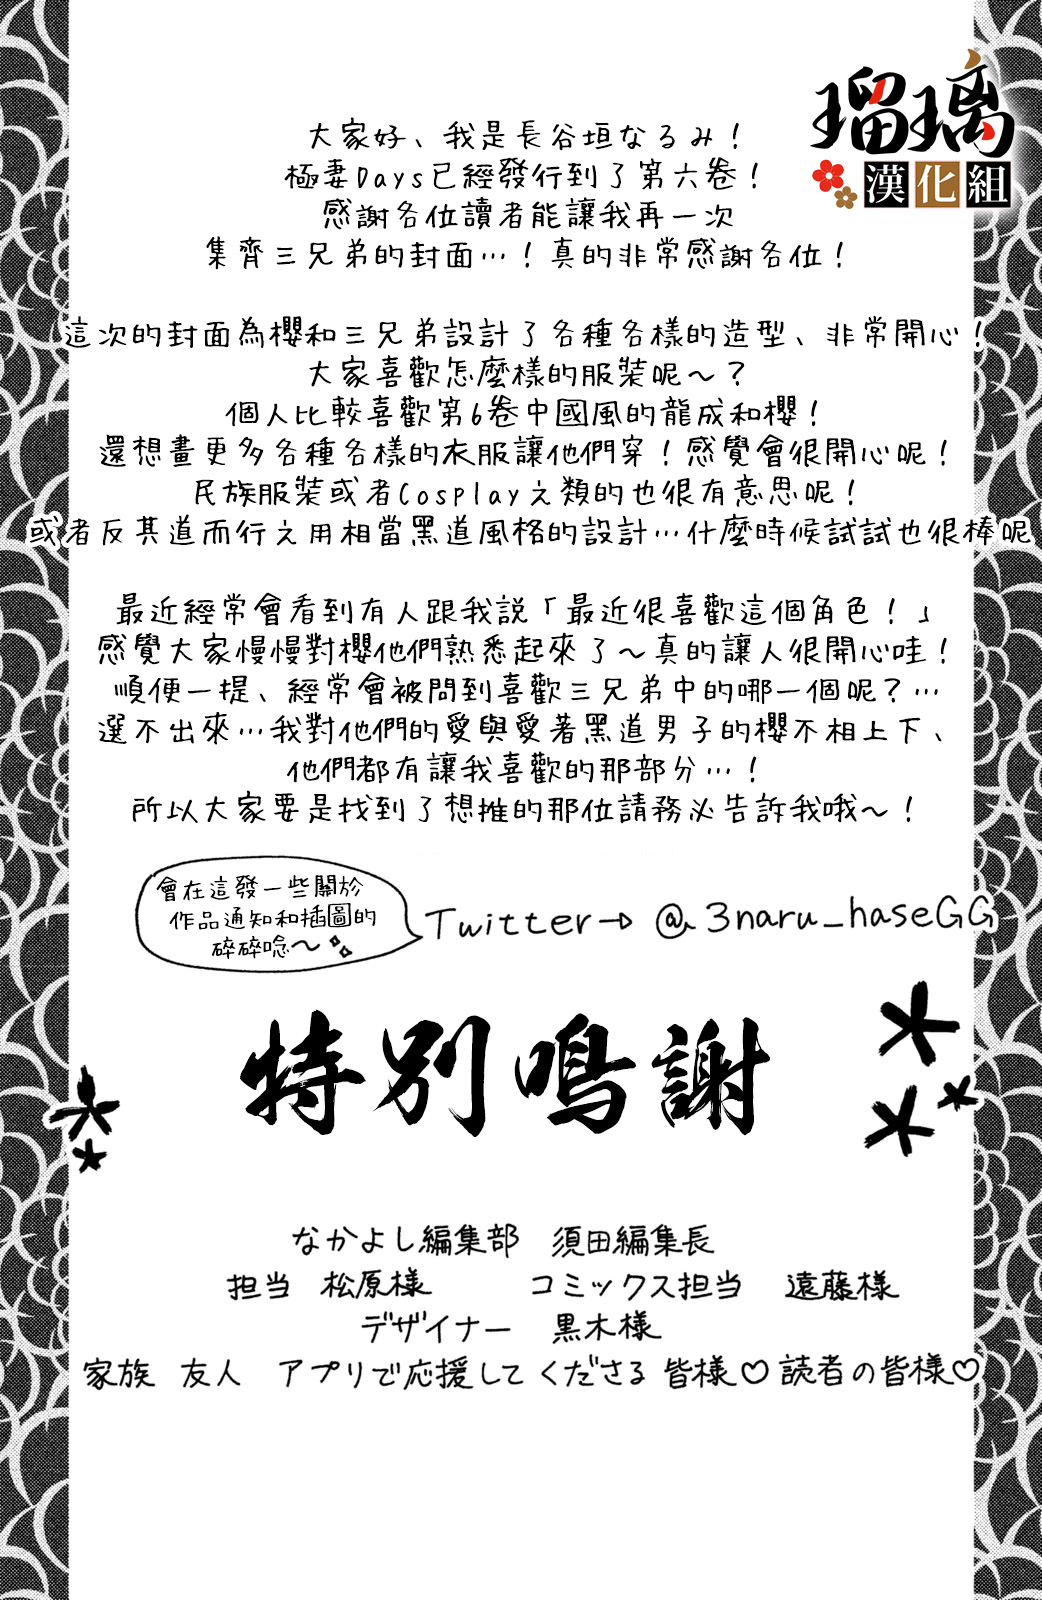 瑠璃
漢化組
大家好、我是長谷垣なるみ！
極妻Days已經發行到了第六卷！
感謝各位讀者能讓我再一次
集齊三兄弟的封面…！真的非常感謝各位！
這次的封面為櫻和三兄弟設計了各種各樣的造型、非常開心！
大家喜歡怎麼樣的服裝呢～？
個人比較喜歡第6卷中國風的龍成和櫻！
還想畫更多各種各樣的衣服讓他們穿！感覺會很開心呢！
民族服裝或者Cosplay之類的也很有意思呢！
或者反其道而行之用相當黑道風格的設計…什麼時候試試也很棒呢
最近經常會看到有人跟我説「最近很喜歡這個角色！」
感覺大家慢慢對櫻他們熟悉起來了～真的讓人很開心哇！
順便一提、經常會被問到喜歡三兄弟中的哪一個呢？…
選不出來…我對他們的愛與愛著黑道男子的櫻不相上下、
他們都有讓我喜歡的那部分…！
所以大家要是找到了想推的那位請務必告訴我哦～！
會在這發一些關於
作品通知和插圖的
碎碎唸～
Twitter→ @3naru_haseGG
特別鳴謝
なかよし編集部　須田編集長
担当　松原様　コミックス担当　遠藤様
デザイナー　黒木様
家族　友人　アプリで応援してくださる皆様♡読者の皆様♡